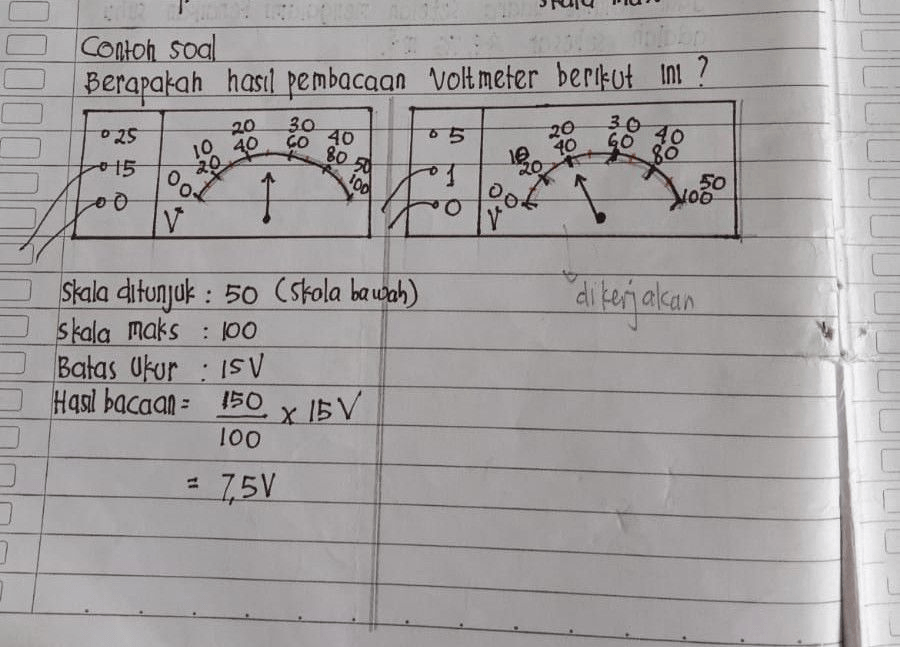 Contoh soal
Berapakah hasil pembacaan Voltmeter berikut ini ?
25
15
0
0 10 20 30 40 50
0 20 40 60 80 100
V
5
1
0
0 10 20 30 40 50
0 20 40 60 80 100
V
dikerjakan
Skala ditunjuk : 50 (skala bawah)
Skala maks : 100
Batas Ukur : 15V
Hasil bacaan = 150/100 x 15V
= 7,5V